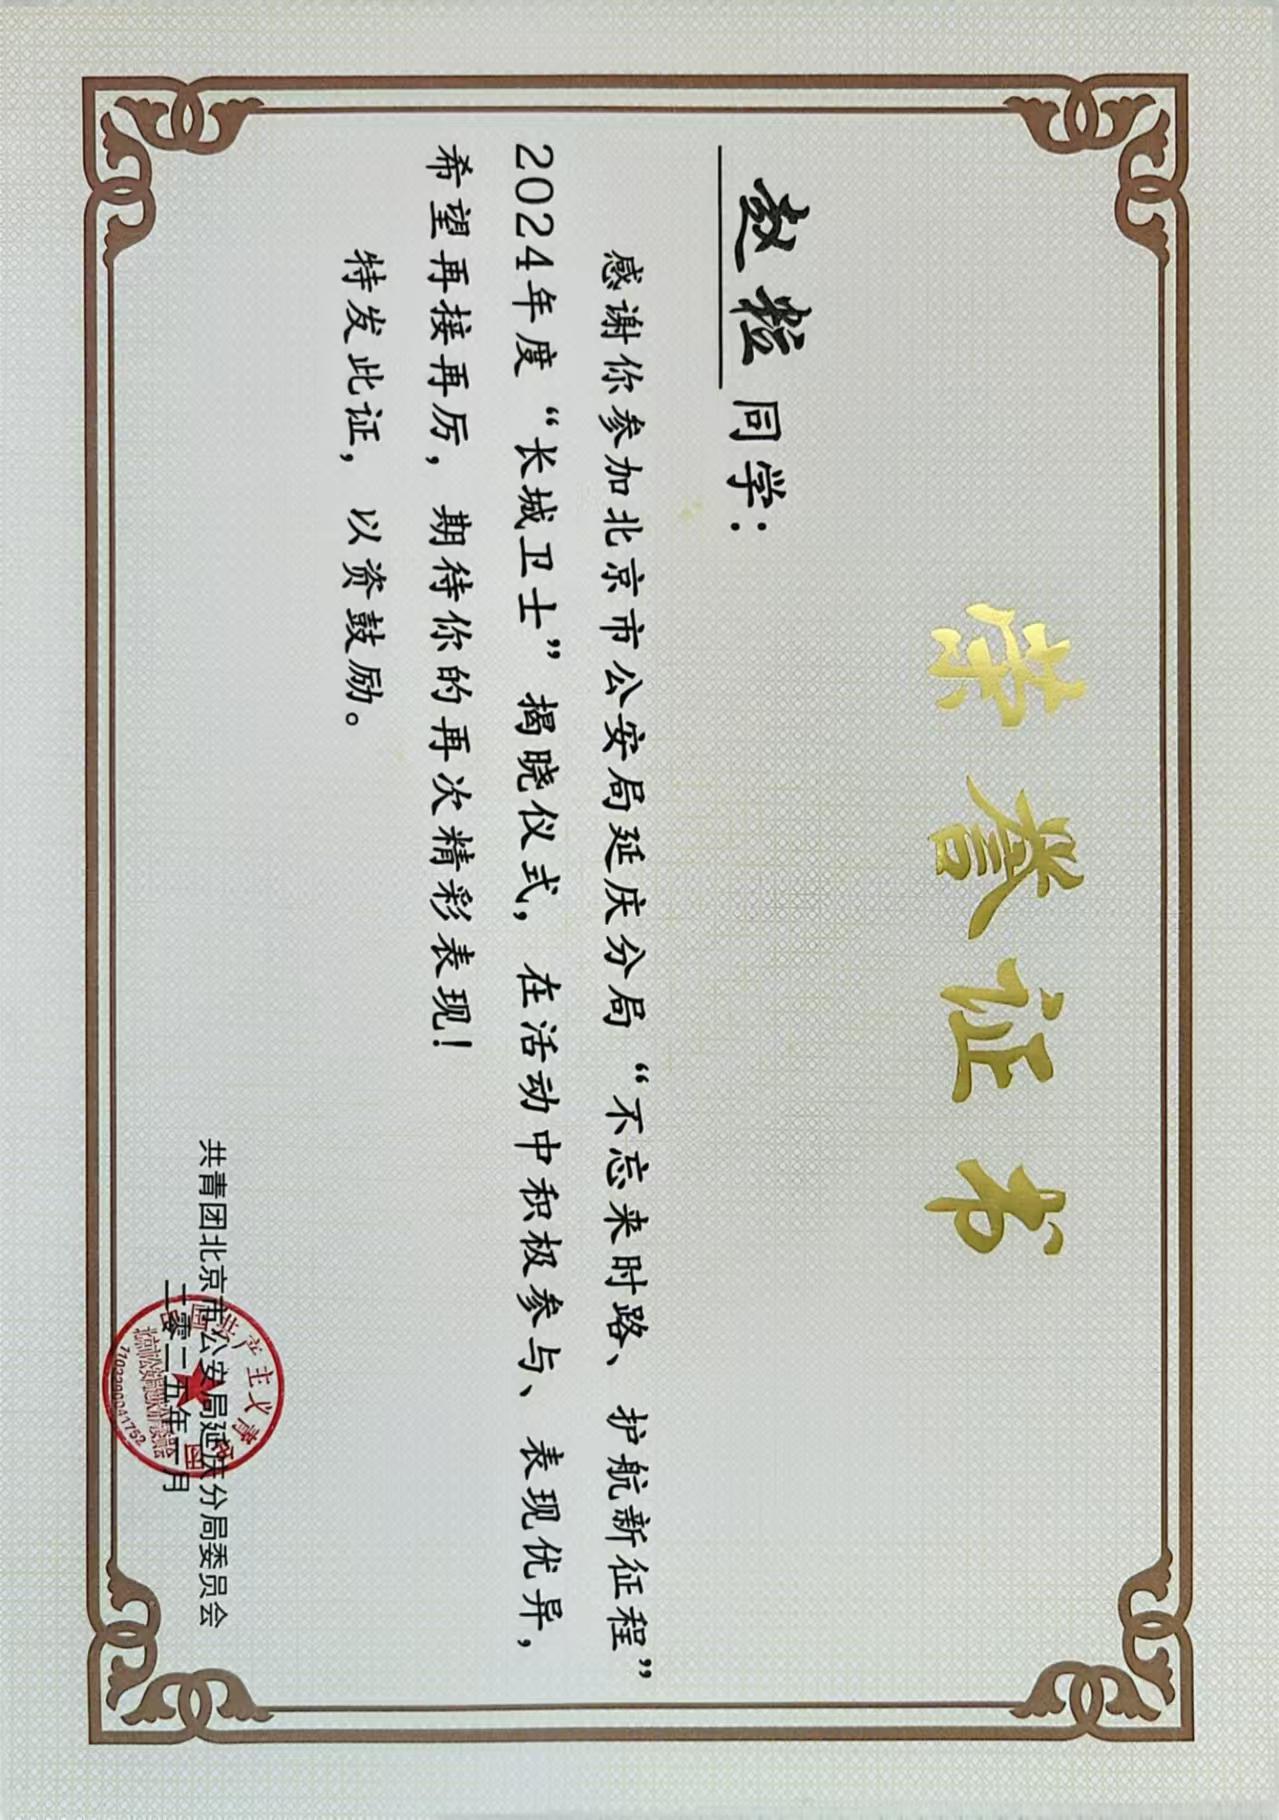 荣誉证书
同学：
感谢你参加北京市公安局延庆分局“不忘来时路、护航新征程”
2024年度“长城卫士”揭晓仪式，在活动中积极参与、表现优异，
希望再接再厉，期待你的再次精彩表现！
特发此证，以资鼓励。
共青团北京市公安局延庆分局委员会
二零二五年一月